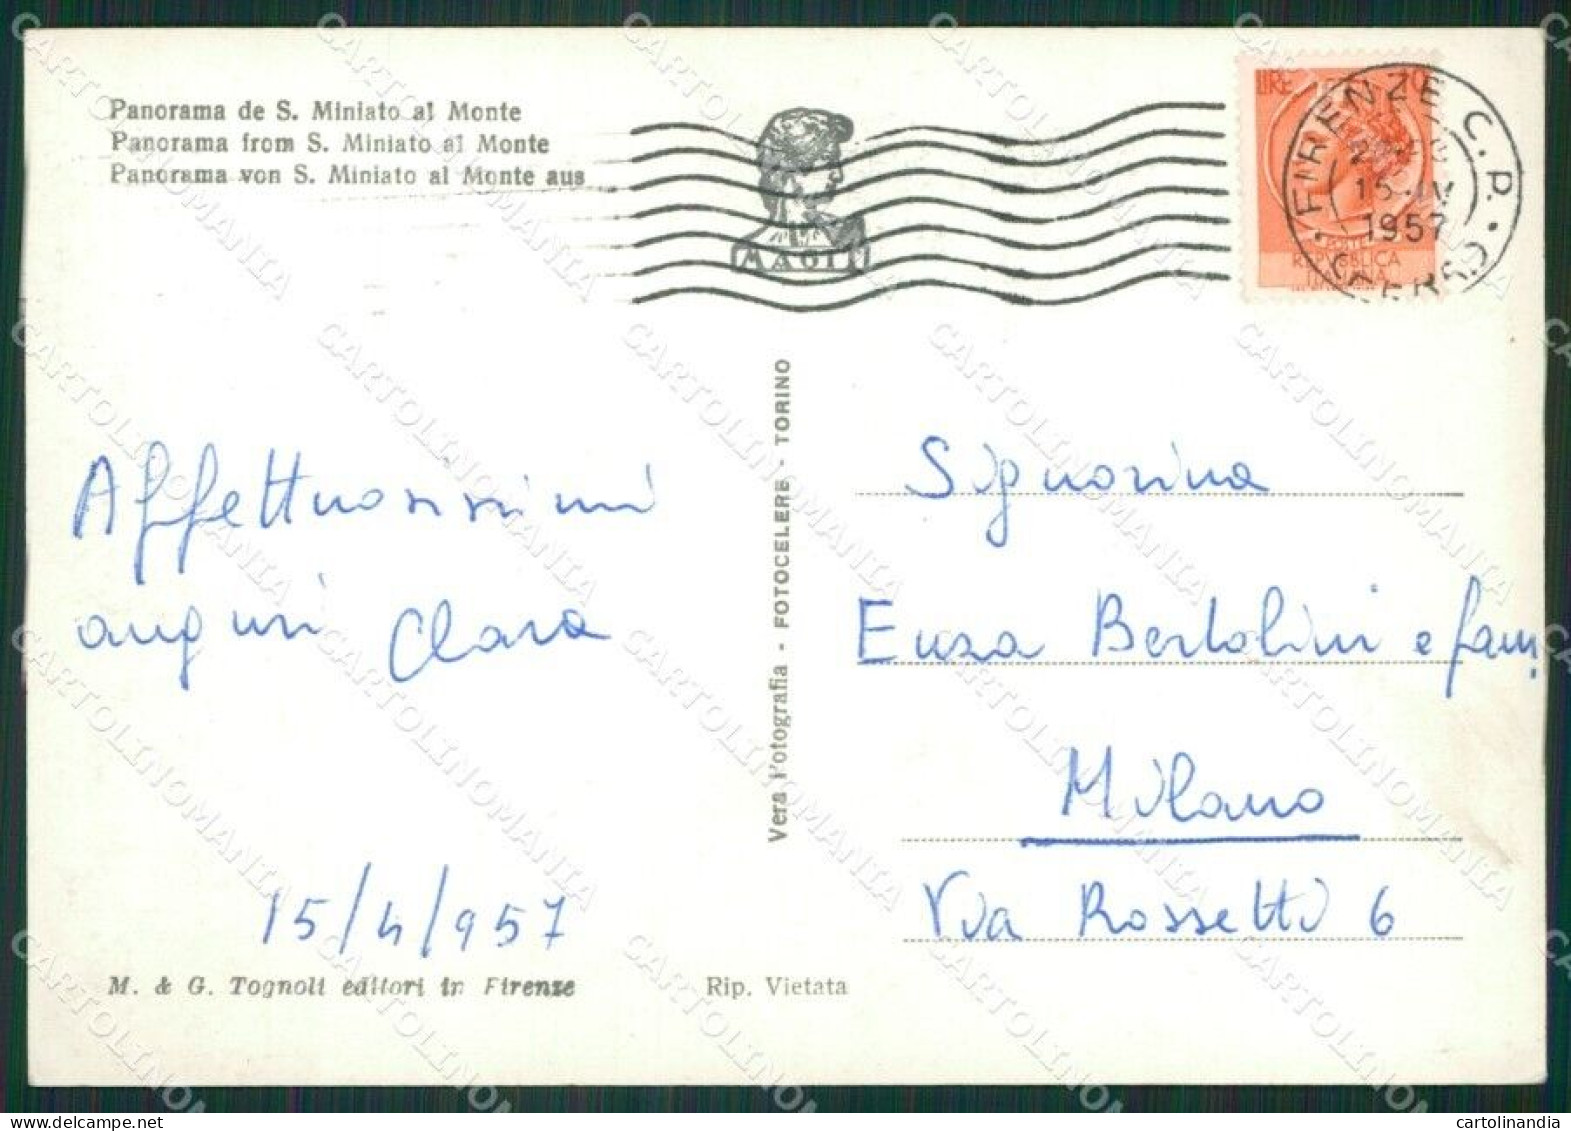 Panorama de S. Miniato al Monte
Panorama from S. Miniato al Monte
Panorama von S. Miniato al Monte aus
MAGIT
LIRE 10
REPVBBLICA
FIRENZE C.P.
15·IV
1957
Affettuosissimi
auguri Clara
15/4/957
M. & G. Tognoli editori in Firenze
Rip. Vietata
Vera Fotografia - FOTOCELERE - TORINO
Signorina
Enza Bertolini e fam.
Milano
Via Rossetti 6
CARTOLINOMANIA
cartolinandia